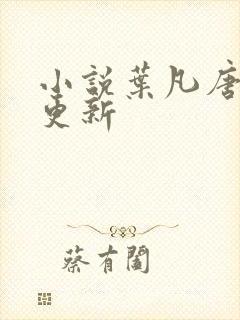 小說葉凡唐
更新
蔡有閣